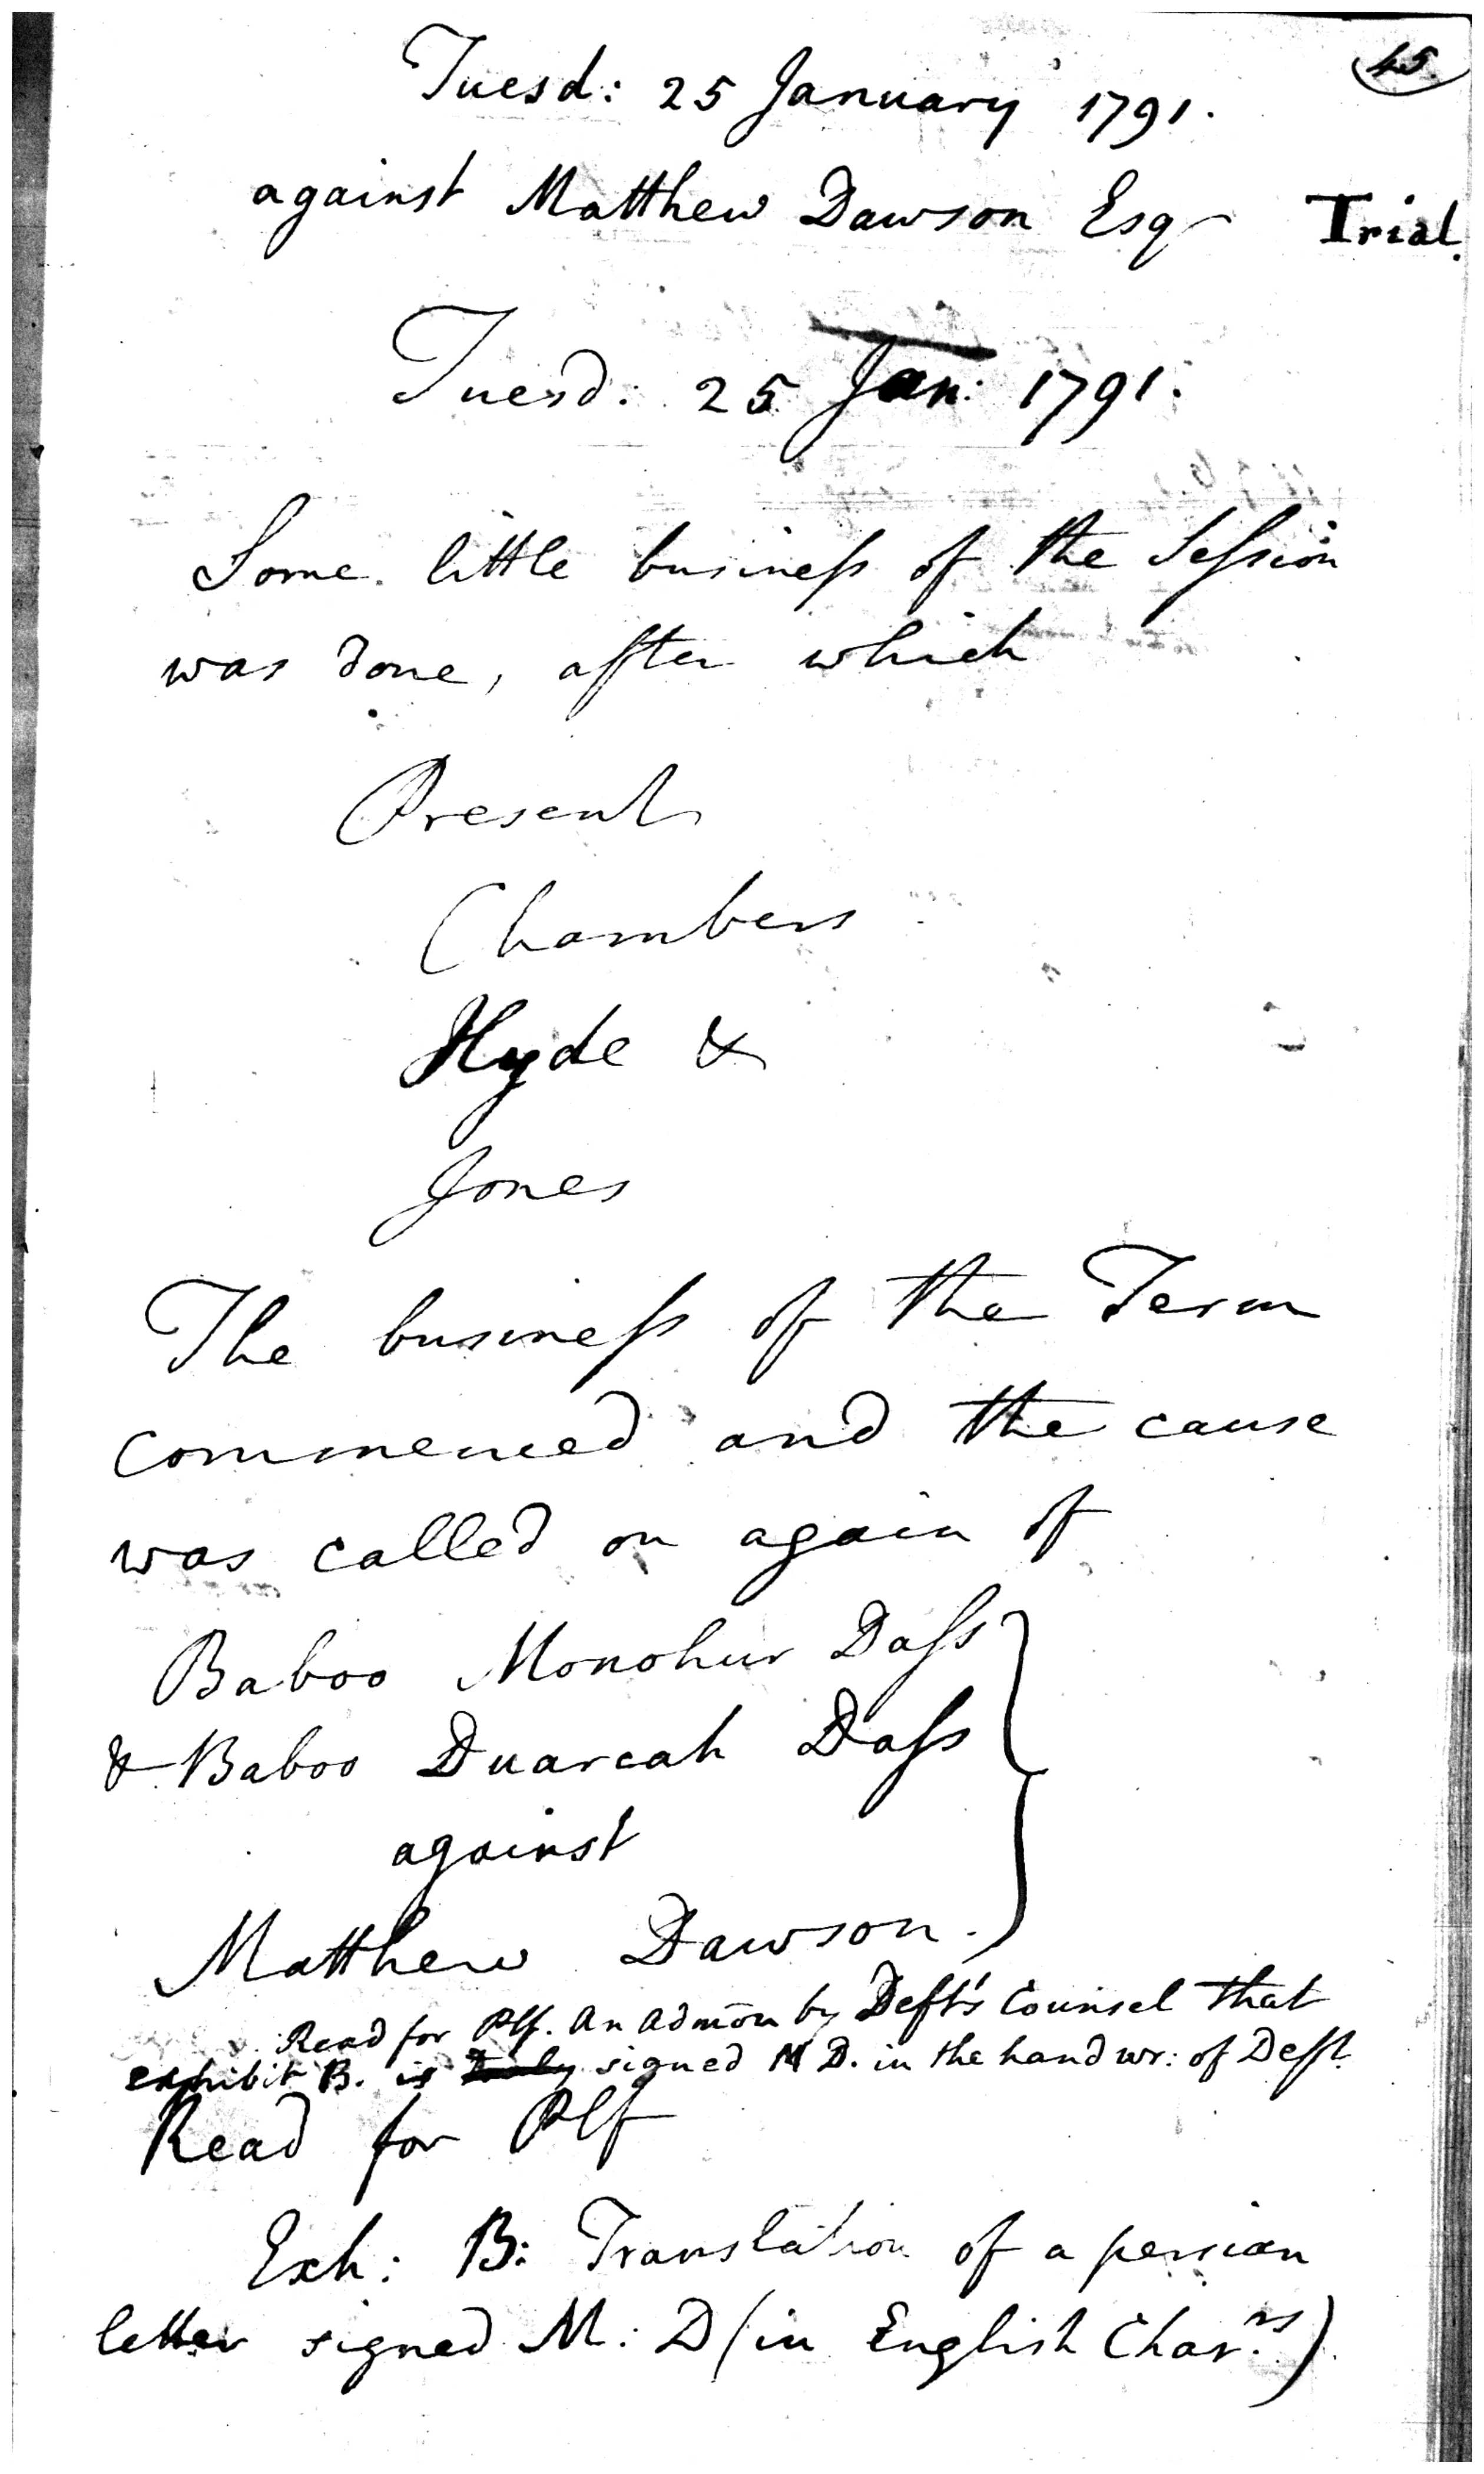 45.
Tuesd: 25 January 1791.
against Matthew Dawson Esqr Trial.
Tuesd: 25 Jan: 1791.
Some little business of the Session
was done, after which
Present
Chambers
Hyde &
Jones
The business of the Term
commenced and the cause
was called on again of
Baboo Monohur Dass
& Baboo Duarcah Dass
against
Matthew Dawson.
Read for Plf. An Admōn by Deft's Counsel that
exhibit B. is signed M D. in the hand wr: of Deft.
Read for Plf
Exh: B: Translation of a persian
letter signed M: D (in English Char.rs)